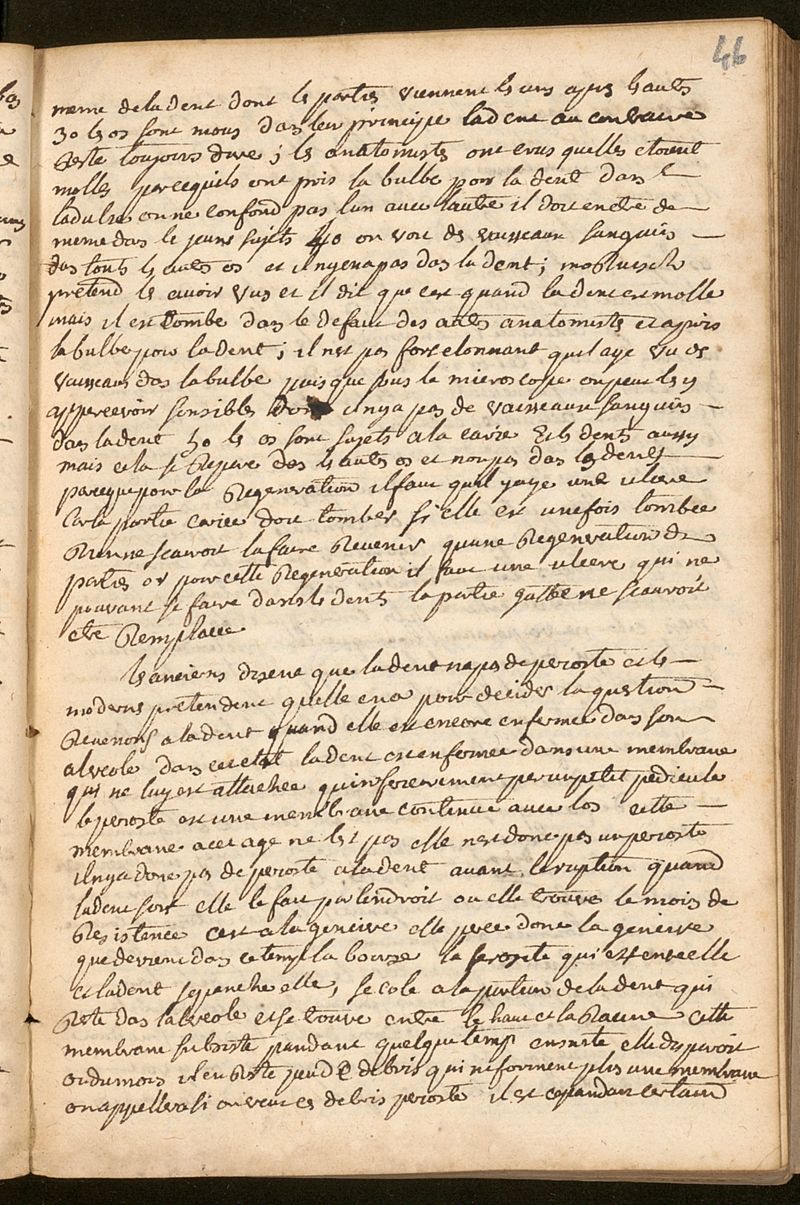 46
meme de la dent dont les parties viennent les uns apres les autres
3o les os sont mous dans leur principe la dent au contraire
reste toujours dure ; les anatomistes ont crus quelles etoient
molles parcequils ont pris la bulbe pour la dent dans
ladulte on ne confond pas lun avec lautre il doit en etre de
meme dans le jeune sujets 4o on voit des vaisseaux sanguins
dans touts les autres os et il nyenapas dans la dent ;
pretend les avoir vus et il dit que cest quand la dent est molle
mais il est tombé dans le defaut des autres anatomistes et a pris
la bulbe pour la dent ; il nest pas fort etonnant quil aye vu des
vaisseaux dans la bulbe puisque sans le microscope on peut les y
appercevoir sensibles donc il nya pas de vaisseaux sanguins
dans la dent 5o les os sont sujets a la carie et les dents aussy
mais cela se repare dans les autres os et non pas dans les dents
parceque pour la regeneration il faut quil y aye une ulcere
car la partie cariée doit tomber si elle est une fois tombée
rien ne scauroit la faire revenir quune regeneration de
parties or pour cette regeneration il faut une ulcere qui ne
pouvant se faire dans les dents la partie gatée ne scauroit
etre remplacée
les anciens disent que la dent na pas de perioste et les
modernes pretendent quelle en a pour decider la question
revenons a la dent quand elle est encore enfermée dans son
alveole dans cet etat la dent est enfermée dans une membrane
qui ne luy est attachée quinferieurement par un petit pedicule
le perioste est une membrane continue avec los cette
membrane a cet age ne lest pas elle nest donc pas un perioste
il nya donc pas de perioste a la dent avant leruption quand
la dent sort elle le fait par lendroit ou elle trouve le mois de
resistence cest a la gencive elle perce donc la gencive
que devient dans ce temps la bourse la serosité qui est entre elle
et la dent sepanche elle, se cole a la portion de la dent qui
reste dans lalveole et se trouve entre le haut et la racine cette
membrane subsiste pendant quelque temp ensuite elle disparoit
ou du mois il en reste peu de debris qui ne forment plus une membrane
on appellera si on veut ces debris perioste il est cependant certain